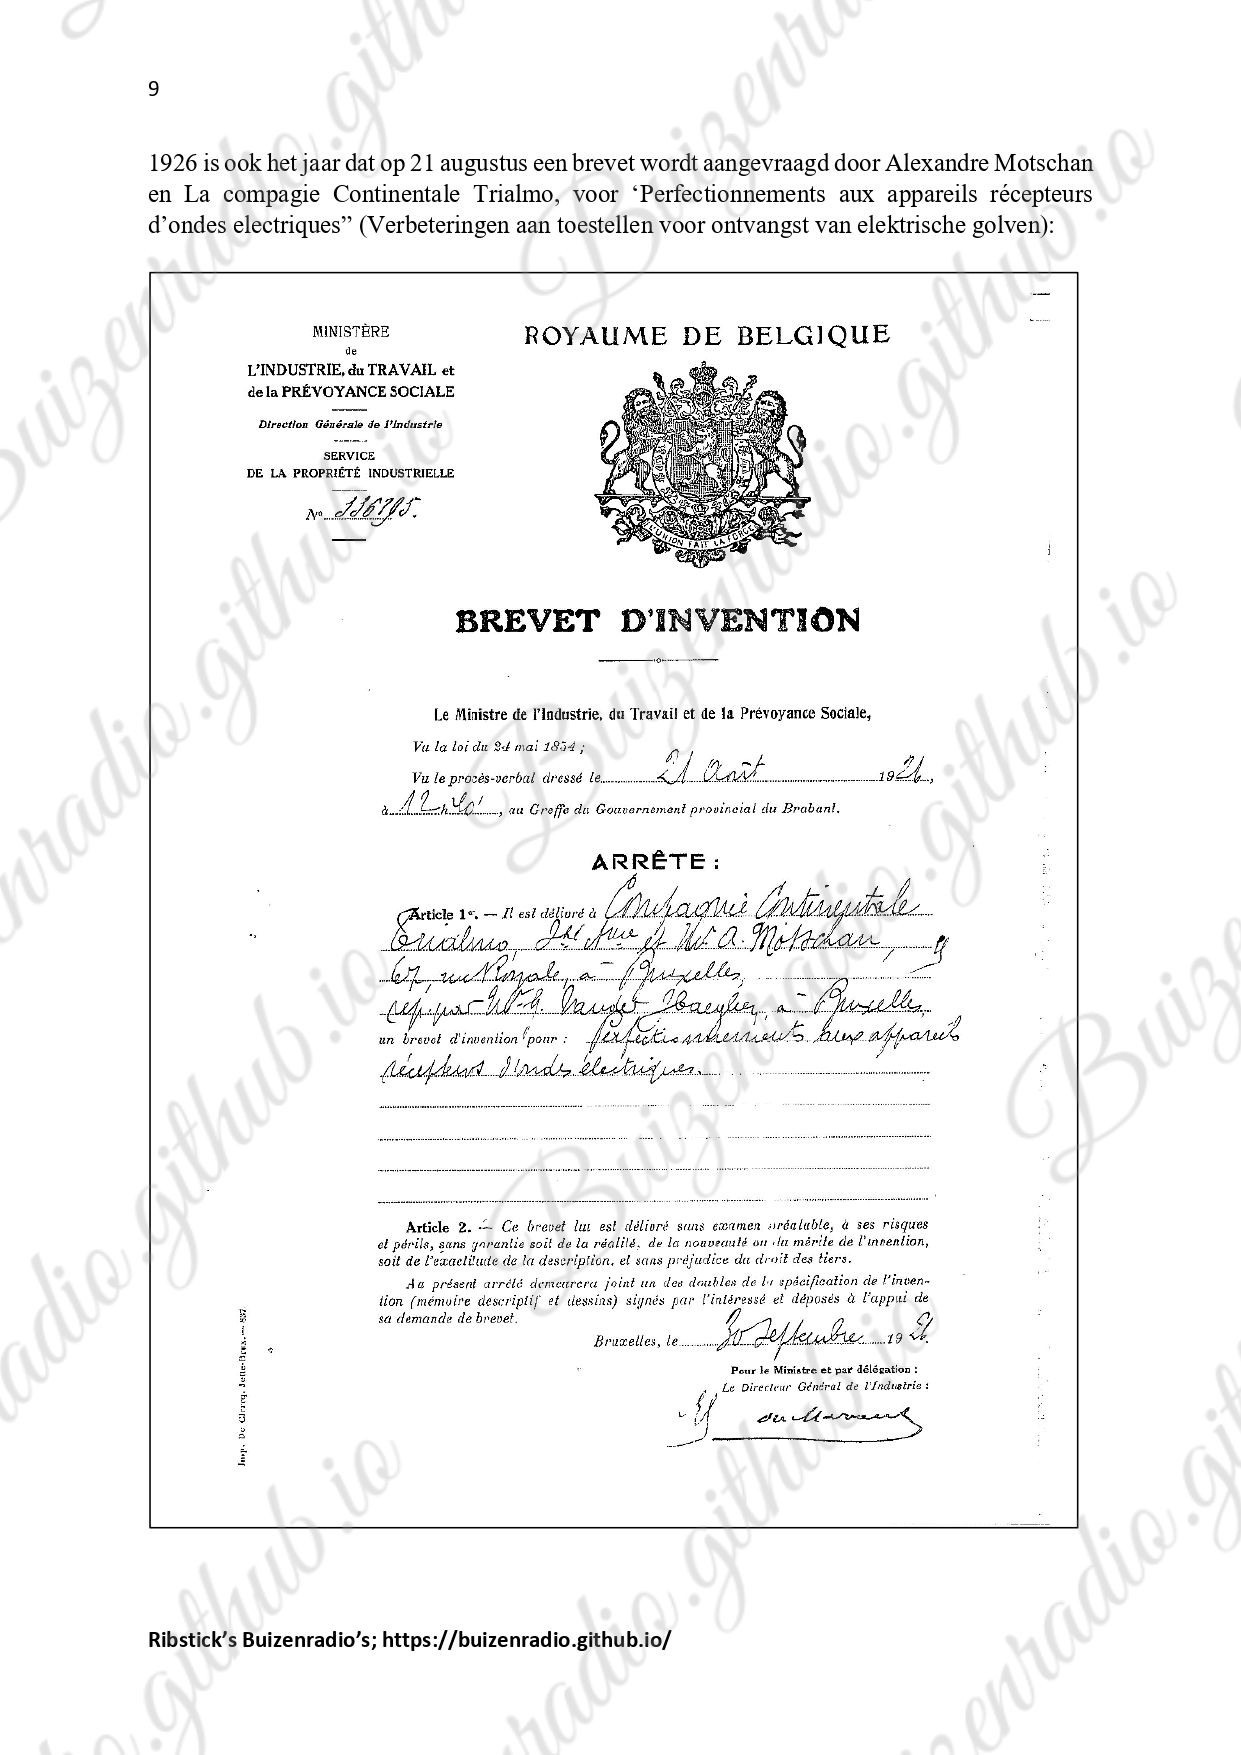 9
1926 is ook het jaar dat op 21 augustus een brevet wordt aangevraagd door Alexandre Motschan
en La compagie Continentale Trialmo, voor ‘Perfectionnements aux appareils récepteurs
d’ondes electriques” (Verbeteringen aan toestellen voor ontvangst van elektrische golven):
MINISTÈRE
de
L'INDUSTRIE, du TRAVAIL et
de la PRÉVOYANCE SOCIALE
Direction Générale de l'Industrie
SERVICE
DE LA PROPRIÉTÉ INDUSTRIELLE
No 336795.
ROYAUME DE BELGIQUE
L'UNION FAIT LA FORCE
BREVET D'INVENTION
Le Ministre de l'Industrie, du Travail et de la Prévoyance Sociale,
Vu la loi du 24 mai 1854 ;
Vu le procès-verbal dressé le 21 Août 1926,
à 12 h 40', au Greffe du Gouvernement provincial du Brabant.
ARRÊTE :
Article 1er. — Il est délivré à Compagnie Continentale
Trialmo, et Mr A. Motschan,
67, rue Royale, à Bruxelles,
rep. par Mr G. Vander Haeghen, à Bruxelles,
un brevet d'invention pour : Perfectionnements aux appareils
récepteurs d'ondes électriques.
Article 2. — Ce brevet lui est délivré sans examen préalable, à ses risques
et périls, sans garantie soit de la réalité, de la nouveauté ou du mérite de l'invention,
soit de l'exactitude de la description, et sans préjudice du droit des tiers.
Au présent arrêté demeurera joint un des doubles de la spécification de l'inven-
tion (mémoire descriptif et dessins) signés par l'intéressé et déposés à l'appui de
sa demande de brevet.
Bruxelles, le 30 Septembre 1926.
Pour le Ministre et par délégation :
Le Directeur Général de l'Industrie :
Imp. De Clercq, Jette-Brux. — 837
Ribstick’s Buizenradio’s; https://buizenradio.github.io/
Buizenradio.github.io